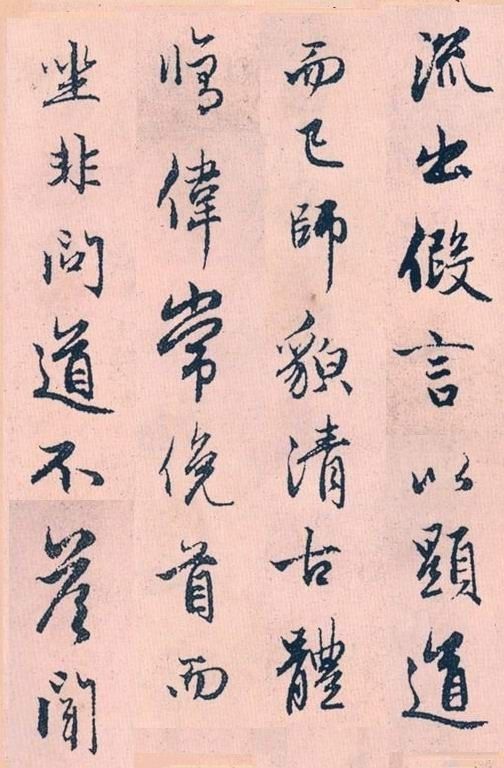 流出假言以顯道
而已師貌清古體
將偉常俛首而
坐非問道不答聞